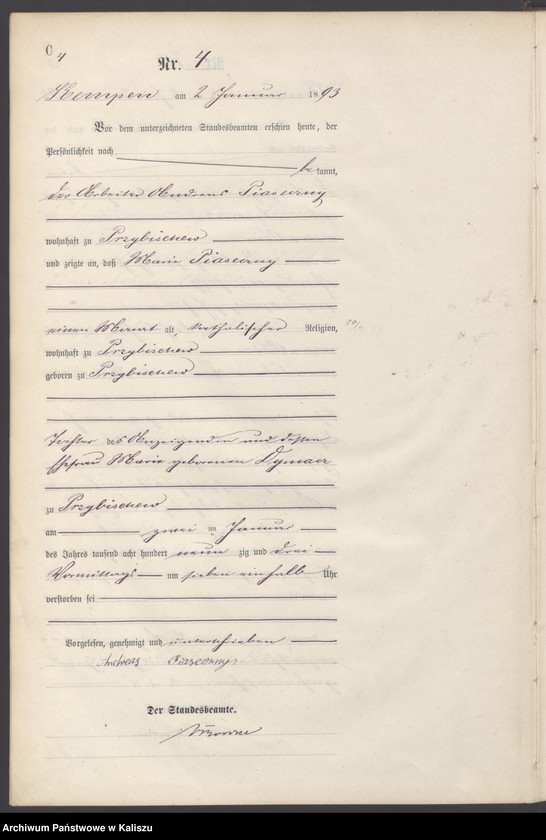 4
Nr. 4
Kempen am 2 Januar 1893
Vor dem unterzeichneten Standesbeamten erschien heute, der
Persönlichkeit nach
be kannt,
der Arbeiter Andreas Piaseczny
wohnhaft zu Przybischew
und zeigte an, daß Marie Piaseczny
einen Monat alt, katholischer Religion,
wohnhaft zu Przybischew
geboren zu Przybischew
Tochter des Anzeigenden und dessen
Ehefrau Marie geborenen
zu Przybischew
am zwei ten Januar
des Jahres tausend acht hundert neun zig und drei
Vormittags um sieben einhalb Uhr
verstorben sei
Vorgelesen, genehmigt und unterschrieben
Andreas
Der Standesbeamte.
Archiwum Państwowe w Kaliszu